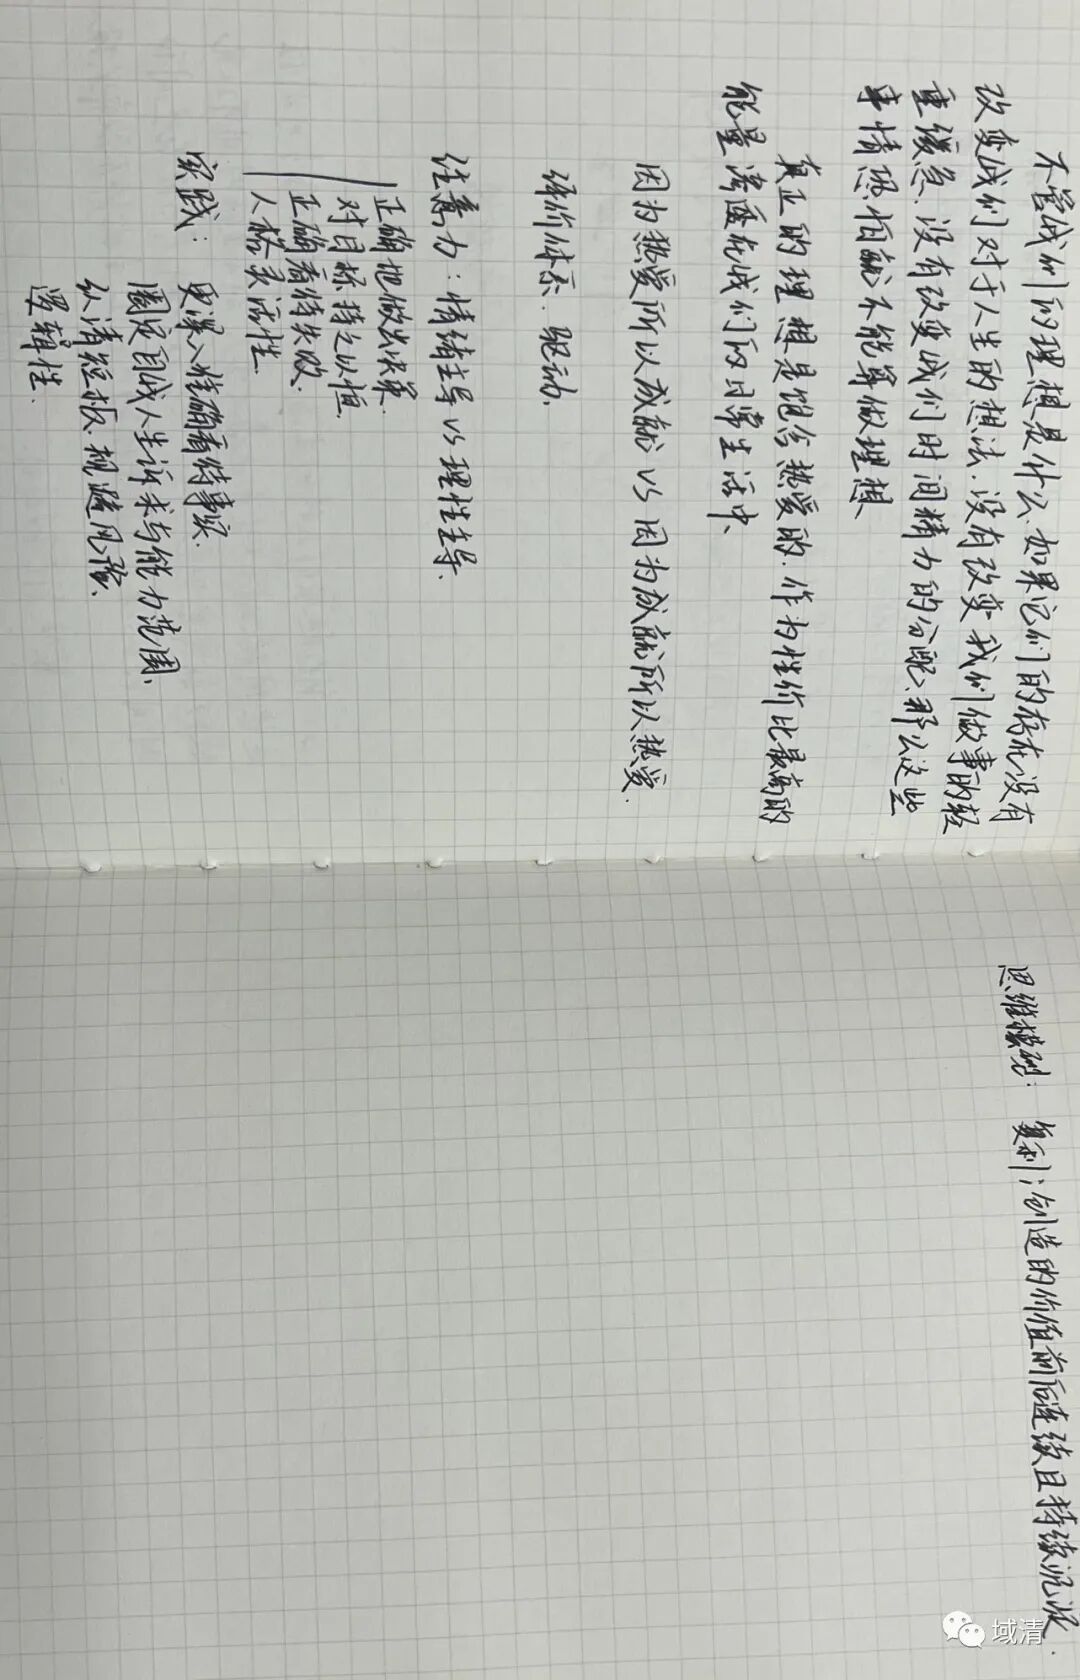 不管我们的理想是什么、如果它们的存在没有
改变我们对于人生的想法、没有改变我们做事的轻
重缓急、没有改变我们时间精力的分配、那么这些
事情恐怕就不能算做理想
真正的理想是饱含热爱的、作为性价比最高的
能量渗透在我们的日常生活中、
因为热爱所以成就 VS 因为成就所以热爱.
评价体系、驱动、
任意力:情绪主导 VS 理性主导.
正确地做出决策.
对目标持之以恒
正确看待失败.
人格灵活性.
实践: 更深入准确看待事实.
圈定自我人生诉求与能力范围、
认清短板、规避风险、
逻辑性.
思维模型: 复利:创造的价值前后连续且持续沉淀.
域清